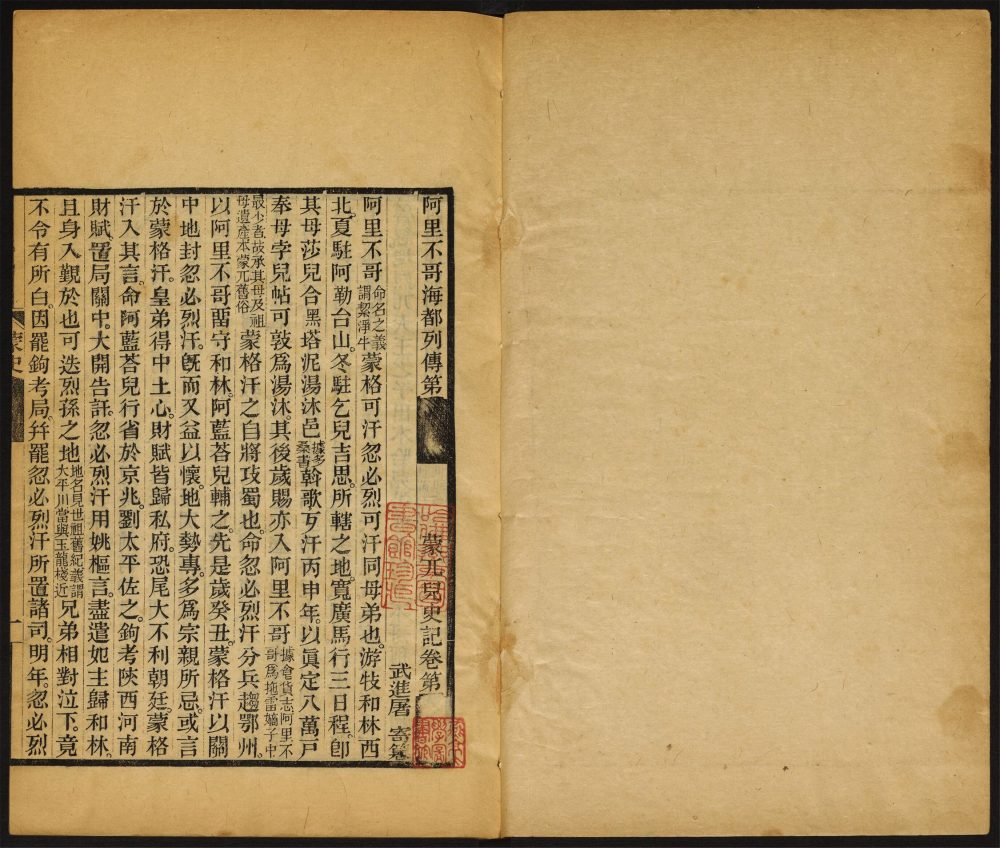 阿里不哥海都列傳第 蒙兀兒史記卷第
武進屠 寄篹
阿里不哥命名之義謂絜淨牛蒙格可汗忽必烈可汗同母弟也游牧和林西
北夏駐阿勒台山冬駐乞兒吉思所轄之地寬廣馬行三日程卽
其母莎兒合黑塔泥湯沐邑據多桑書斡歌歹汗丙申年以眞定八萬戶
奉母孛兒帖可敦爲湯沐其後歲賜亦入阿里不哥據倉貨志阿里不哥爲拖雷嫡子中
最少者故承其母及祖母遺產本蒙兀舊俗蒙格汗之自將攻蜀也命忽必烈汗分兵趨鄂州
以阿里不哥畱守和林阿藍荅兒輔之先是歲癸丑蒙格汗以關
中地封忽必烈汗旣而又益以懷地大勢專多爲宗親所忌或言
於蒙格汗皇弟得中土心財賦皆歸私府恐尾大不利朝廷蒙格
汗入其言命阿藍荅兒行省於京兆劉太平佐之鉤考陝西河南
財賦置局關中大開告訐忽必烈汗用姚樞言盡遣妃主歸和林
且身入覲於也可迭烈孫之地地名見世祖舊紀義謂大平川當與玉龍棧近兄弟相對泣下竟
不令有所白因罷鉤考局幷罷忽必烈汗所置諸司明年忽必烈
蒙史
一